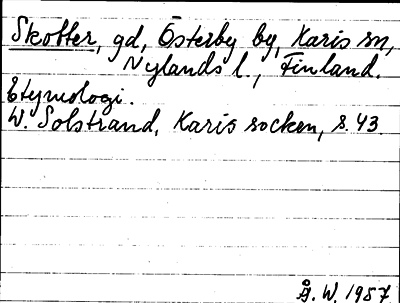 Skotter, gd, Österby by, Karis sn,
Nylands l., Finland.
Etymologi.
W. Solstrand, Karis socken, s. 43.
Å. W. 1957